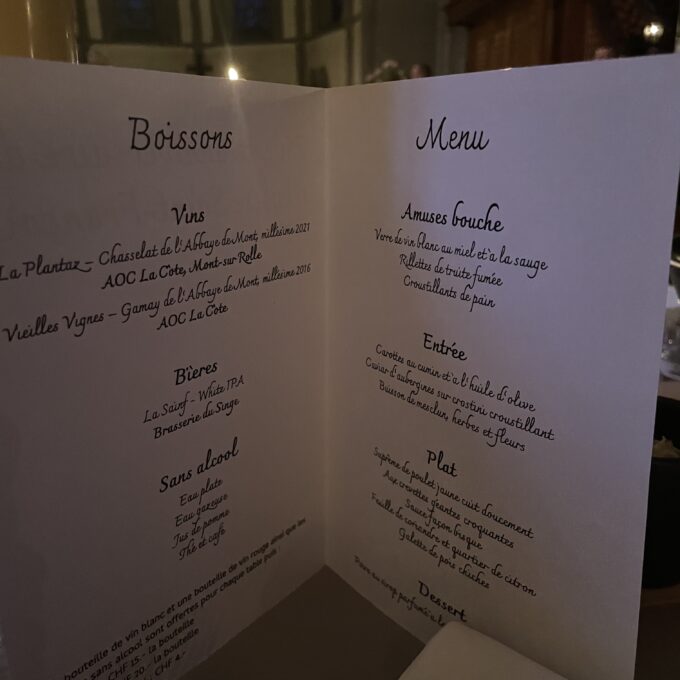 Boissons
Vins
La Plantaz – Chasselat de l'Abbaye de Mont, millésime 2021
AOC La Côte, Mont-sur-Rolle
Vieilles Vignes – Gamay de l'Abbaye de Mont, millésime 2016
AOC La Côte
Bières
La Sainf - White IPA
Brasserie du Singe
Sans alcool
Eau plate
Eau gazeuse
Jus de pomme
Thé et café
bouteille de vin blanc et une bouteille de vin rouge ainsi que les
sans alcool sont offertes pour chaque table puis :
CHF 15.- la bouteille
CHF 20.- la bouteille
CHF 4.-
Menu
Amuses bouche
Verre de vin blanc au miel et à la sauge
Rillettes de truite fumée
Croustillants de pain
Entrée
Carottes au cumin et à l'huile d'olive
Caviar d'aubergines sur crostini croustillant
Buisson de mesclun, herbes et fleurs
Plat
Suprême de poulet jaune cuit doucement
Aux crevettes géantes croquantes
Sauce façon bisque
Feuille de coriandre et quartier de citron
Galette de pois chiches
Dessert
Poire au sirop parfumé à